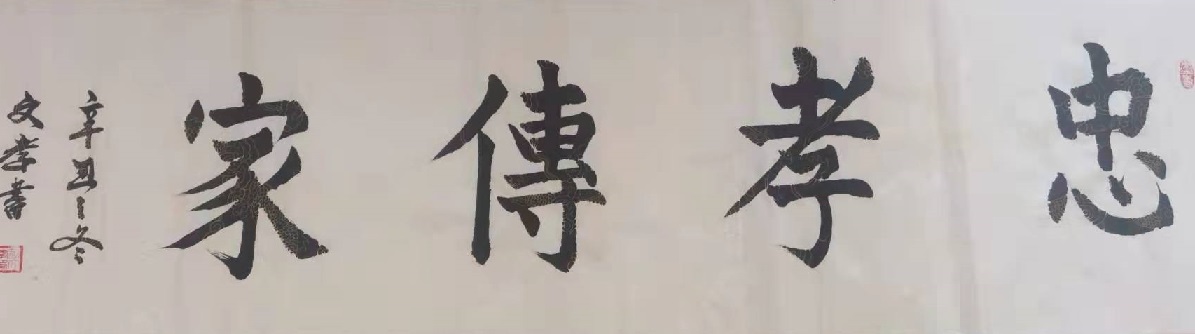 忠孝傳家
辛丑之冬
文孝書